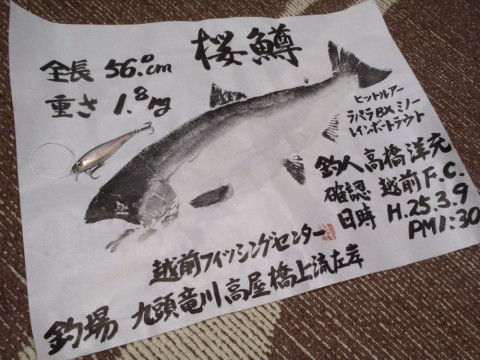 桜鱒
全長 56.0cm
重さ 1.8kg
ヒットルアー
ラパラBXミノー
レインボートラウト
釣人 高橋洋充
確認 越前F.C.
日時 H.25.3.9
PM1:30
越前フィッシングセンター
釣場 九頭竜川高屋橋上流左岸